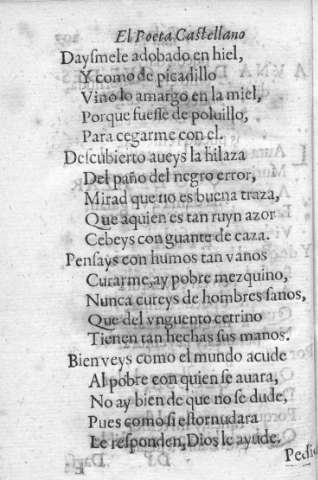 El Poeta Castellano
Dayſmele adobado en hiel,
Y como de picadillo
Vino lo amargo en la miel,
Porque fueſſe de poluillo,
Para cegarme con el.
Deſcubierto aueys la hilaza
Del paño del negro error,
Mirad que no es buena traza,
Que aquien es tan ruyn azor
Cebeys con guante de caza.
Penſays con humos tan vanos
Curarme, ay pobre mezquino,
Nunca cureys de hombres ſanos,
Que del vnguento cetrino
Tienen tan hechas ſus manos.
Bien veys como el mundo acude
Al pobre con quien ſe auara,
No ay bien de que no ſe dude,
Pues como ſi eſtornudara
Le reſponden, Dios le ayude.